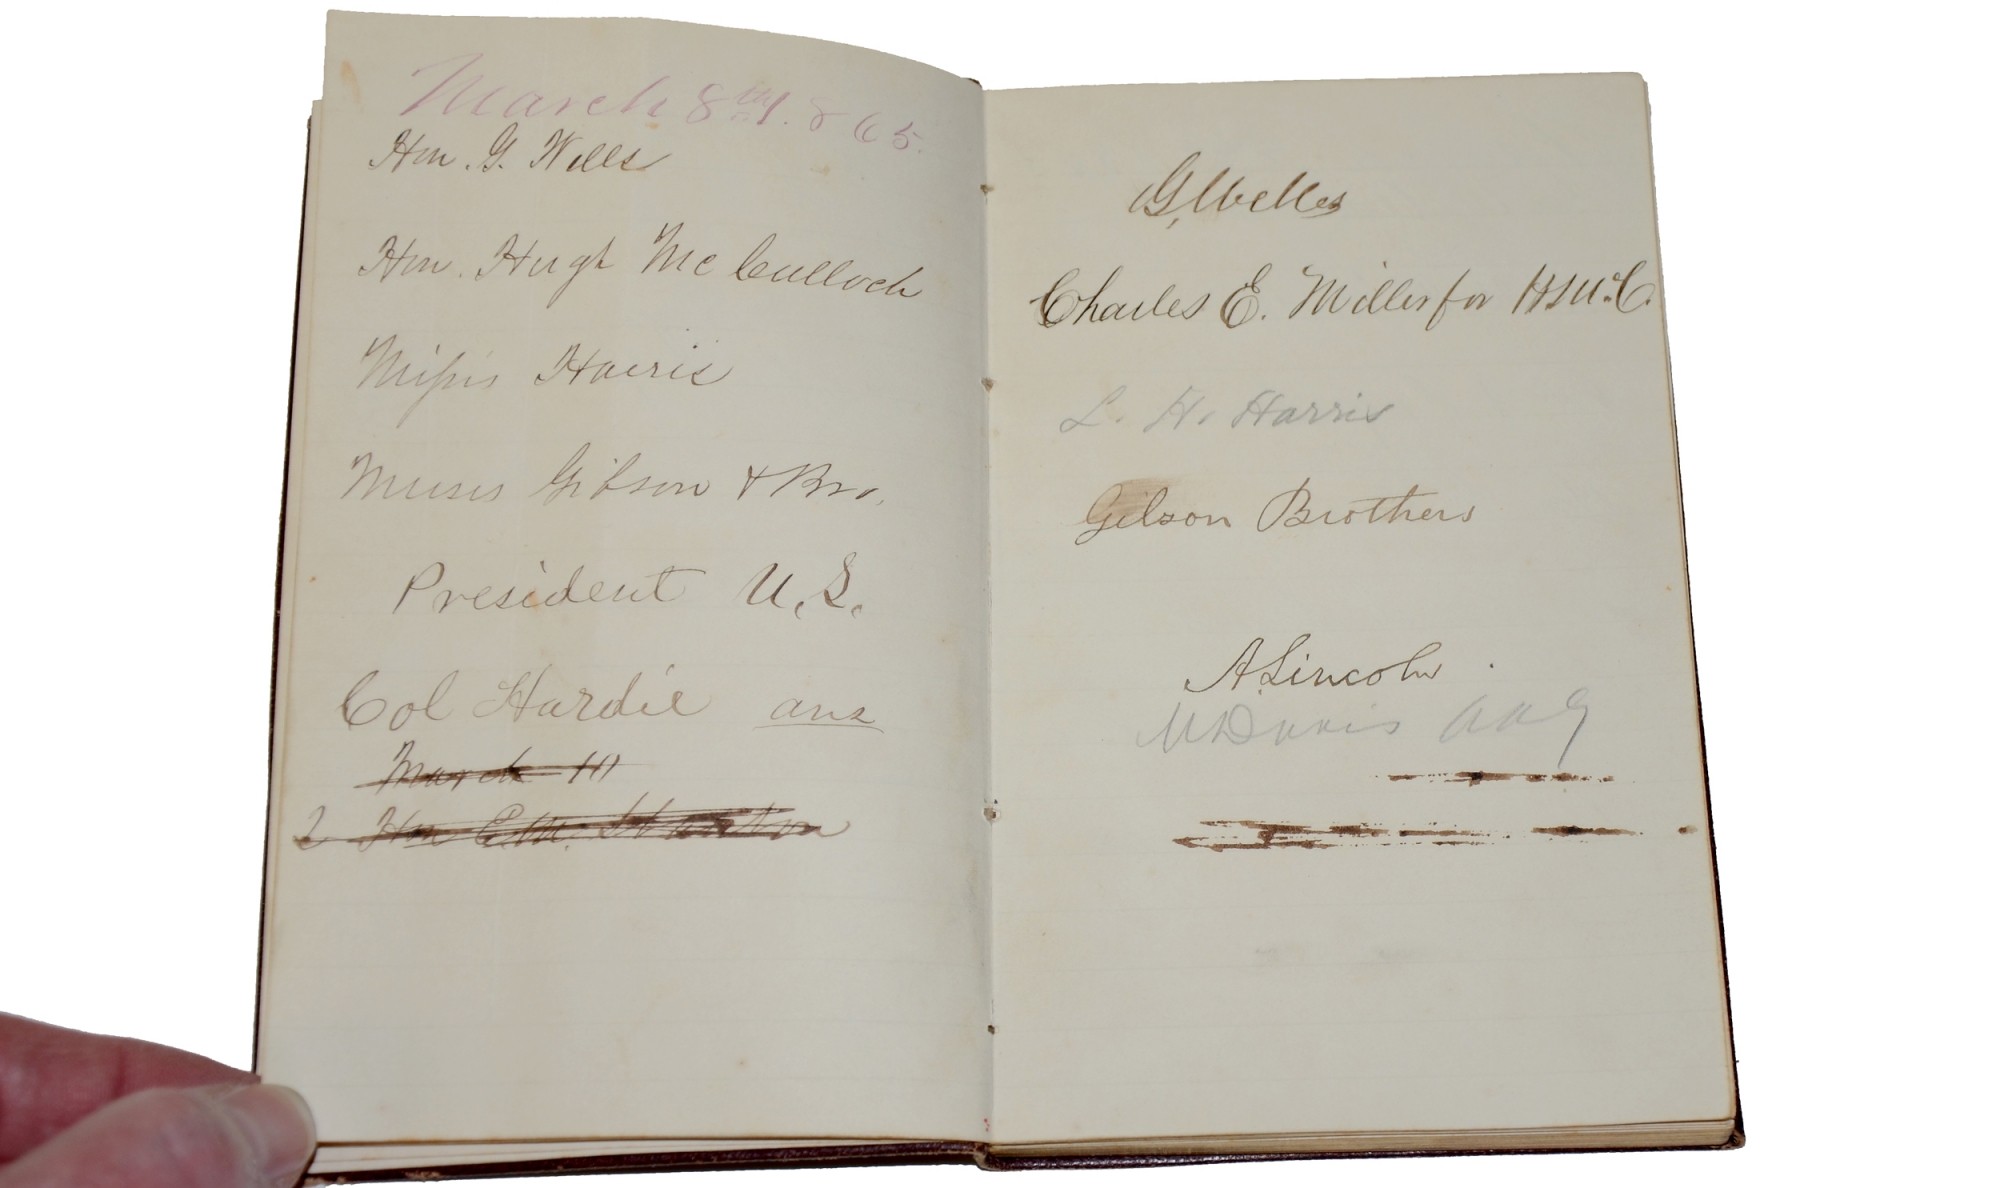 March 8th 1865.
Hon. G. Wells
Hon. Hugh McCulloch
Misses Harris
Messrs Gibson & Bro.
President U.S.
Col Hardie ans
March 10
2 Hon E.M. Stanton
G, Welles
Charles E. Miller for H McC.
L. H. Harris
Gilson Brothers
A. Lincoln
Davis AAG